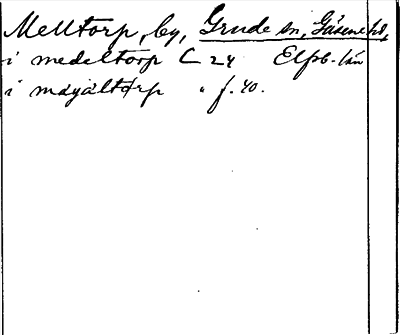 Melltorp, by, Grude sn, Gäsene hd,
i medeltorp C 24 Elfsb. län
i mdyältorp " f. 40.